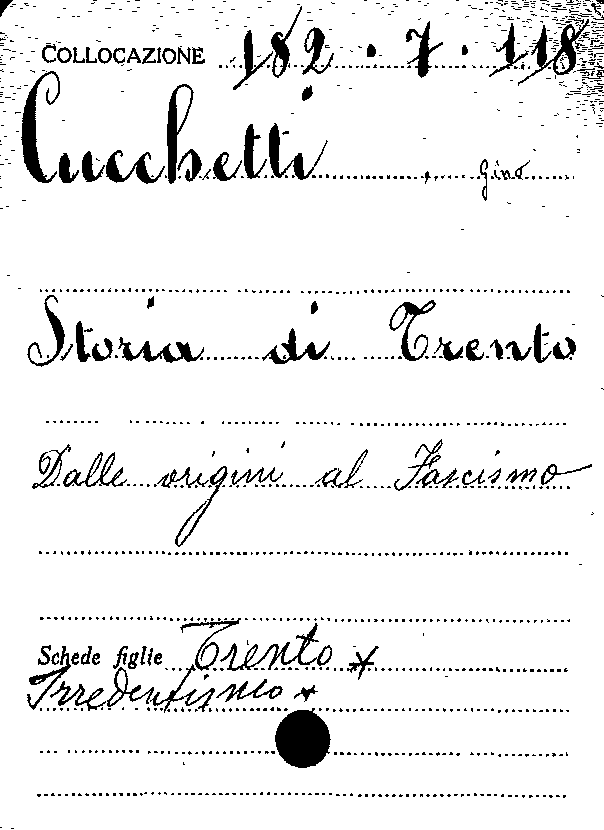 COLLOCAZIONE 182.7.118
Cucchetti, Gino
Storia di Trento
Dalle origini al Fascismo
Schede figlie Trento *
Irredentismo *